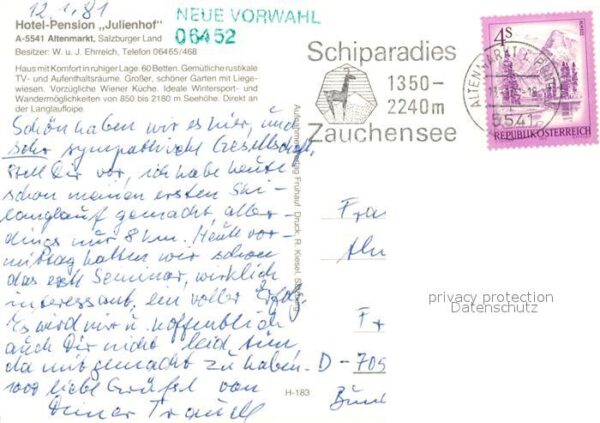 12.1.81
Hotel-Pension „Julienhof"
A-5541 Altenmarkt, Salzburger Land
Besitzer: W. u. J. Ehrreich, Telefon 06465/468
NEUE VORWAHL
06452
Haus mit Komfort in ruhiger Lage. 60 Betten. Gemütliche rustikale
TV- und Aufenthaltsräume. Großer, schöner Garten mit Liege-
wiesen. Vorzügliche Wiener Küche. Ideale Wintersport- und
Wandermöglichkeiten von 850 bis 2180 m Seehöhe. Direkt an
der Langlaufloipe.
Schiparadies
1350–
2240m
Zauchensee
ALTENMARKT
5541
4s
REPUBLIK ÖSTERREICH
Schön haben wir es hier, und
sehr sympathische Gesellschaft.
Stell Dir vor, ich habe heute
schon meinen ersten Ski-
langlauf gemacht, aller-
dings nur 8 km. Heute vor-
mittag hatten wir schon
das erste Seminar, wirklich
interessant, ein voller Erfolg.
Es wird mir u. hoffentlich
auch Dir nicht leid tun
da mitgemacht zu haben.
1000 liebe Grüße von
Deiner Traudl
Druck. R. Kiesel, Salzburg
H-183
Fra
D-709
privacy protection
Datenschutz